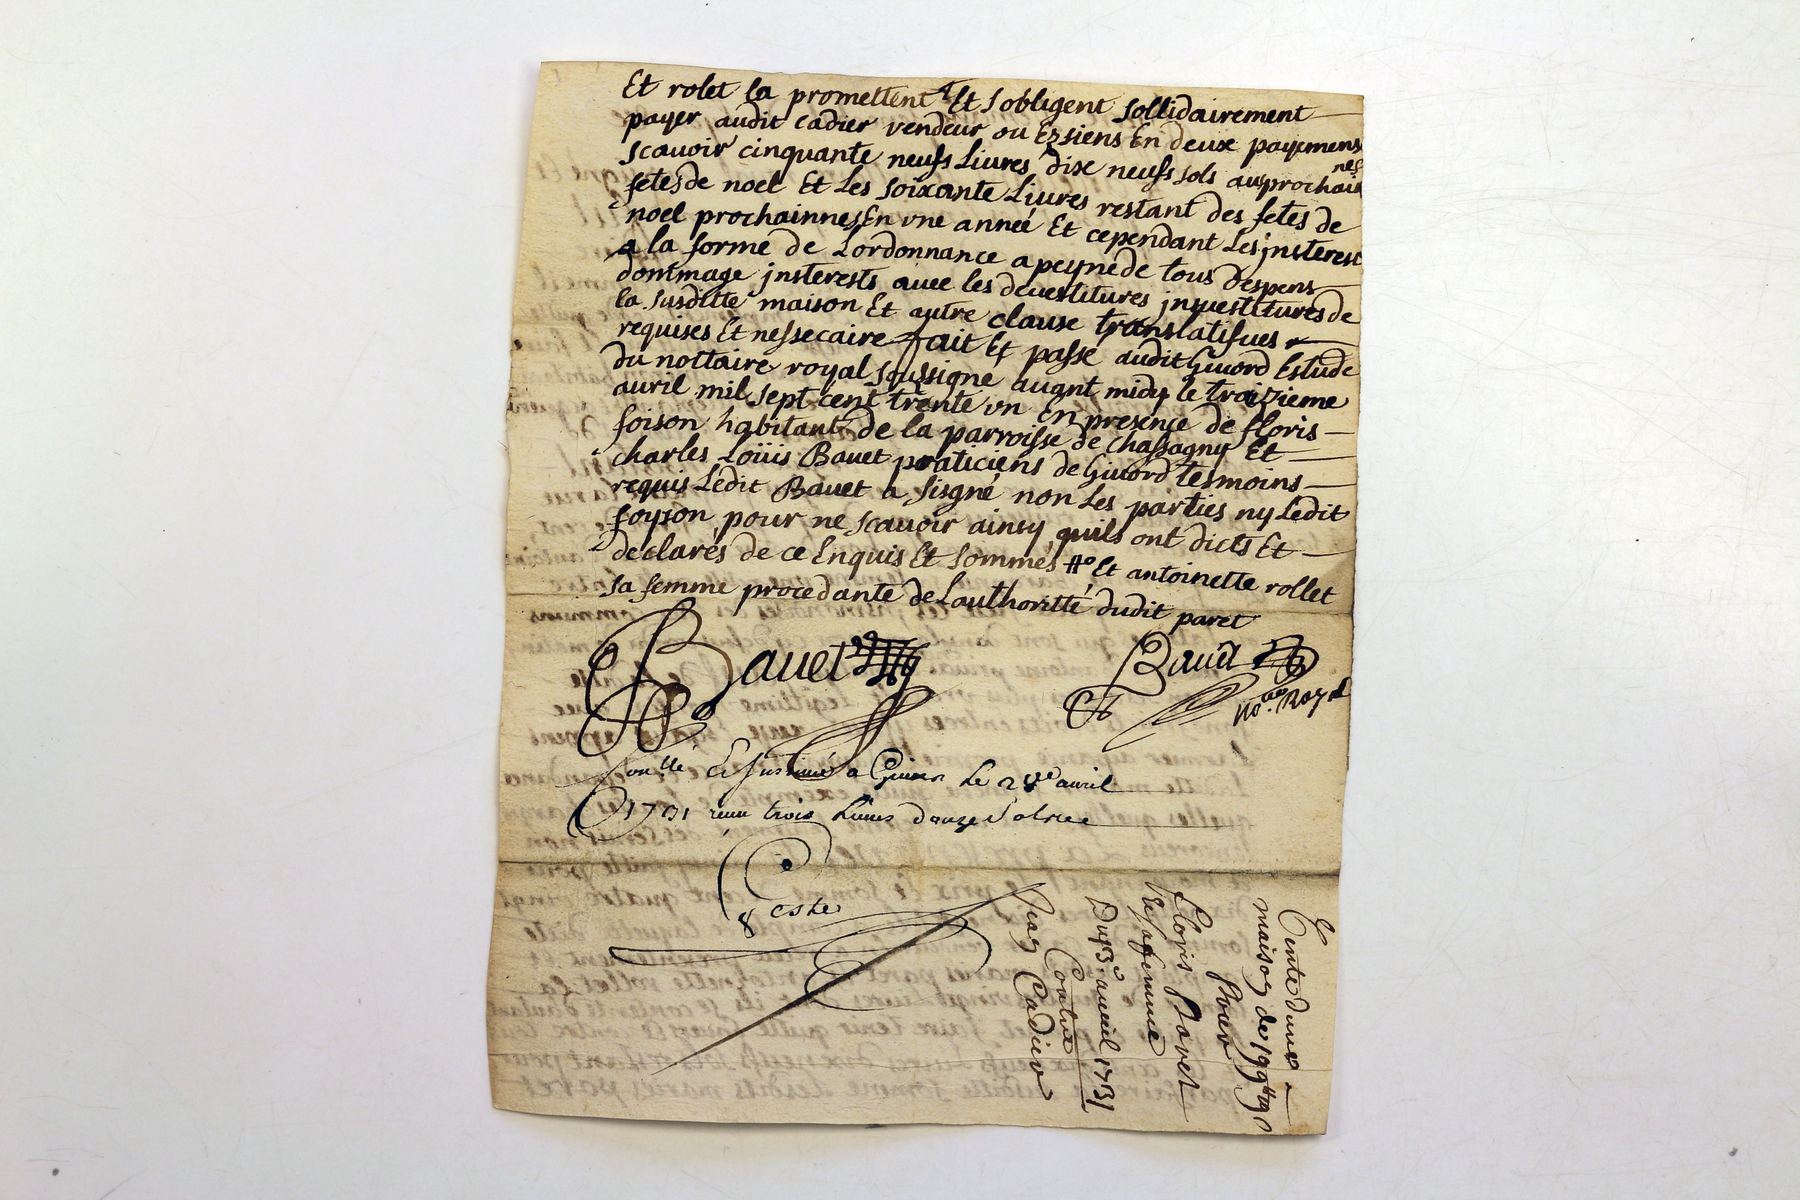 Et rolet la promettent Et sobligent sollidairement
payer audit cadier vendeur ou Ez siens En deux payemens
scauoir cinquante neufs Liures dixe neufs sols aux prochainnes
fetes de noel Et Les soixante Liures restant des fetes de
noel prochainnes En vne année Et cependant Les jnsterest
a la forme de Lordonnance a peyne de tous Despens
dommage jnsterests auec les deuestitures jnuestitures de
la susditte maison Et autre clause translatifues
requises Et nessecaire fait Et passe audit Giuord Estude
du nottaire royal soussigne auant midy le troizieme
auril mil sept cent trente vn En presence de floris
foison habitant de la parroisse de chassagny Et
charles Loüis Bauet praticiens de Giuord tesmoins
requis Ledit Bauet a sisgné non Les parties ny Ledit
foyson pour ne scauoir ainsy quils ont dicts Et
declarés de ce Enquis Et sommés Et antoinette rollet
sa femme procedante de Lauthoritté dudit paret
Bauet
Bauet
No.re Royal
a Giuors Le 28e auril
1731 recu trois Liures douze sols
Coste
Vente dune
maison de
Pour
Floris Paret
Et sa femme
Du 3e auril 1731
Contre
Jean Cadier